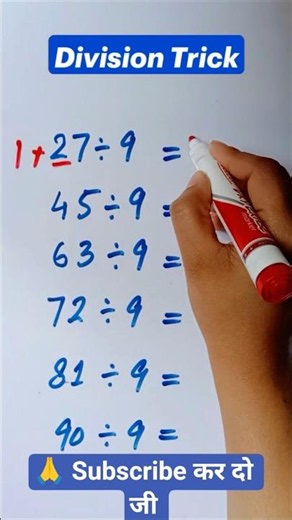 Division Trick
1+27÷9 =
45÷9 =
63÷9 =
72÷9 =
81÷9 =
90÷9 =
🙏 Subscribe कर दो
जी